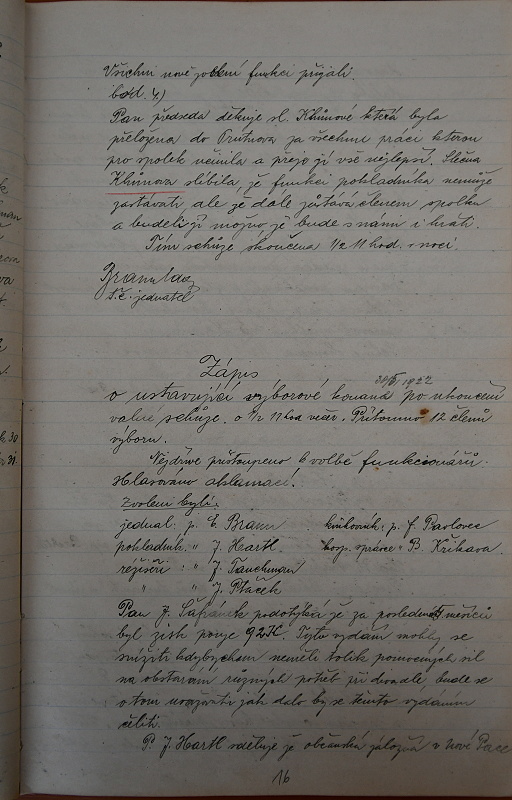 Všichni nově zvolení funkci přijali.
bod. 4.)
Pan předseda děkuje sl. Khůnové která byla
přeložena do Trutnova za všechnu práci kterou
pro spolek učinila a přeje jí vše nejlepší. Slečna
Khůnova slíbila, že funkci pokladníka nemůže
zastávati, ale že dále zůstává členem spolku
a budeli jí možno, že bude s námi i hráti.
Tím schůze skončena 1/2 11 hod. v noci.
t.č. jednatel
Zápis
1922
o ustavující výborové konané po ukončení
valné schůze. o 1/2 11 hod večer. Přítomno 12 členů
výboru.
Nejdříve přistoupeno k volbě funkcionářů.
Hlasováno aklamací.
Zvoleni byli:
jednat: p. E. Braun knihovník: p. F. Pavlovec
pokladník: " J. Hartl hosp. správce " B. Křikava.
režiséři: " J. Tauchman
" " J. Ptáček
Pan J. Šafránek podotýká že za posledních měsíců
byl zisk pouze 92 K. Tyto vydání mohly se
snížiti kdybychom neměli tolik pomocných sil
na obstarání různých potřeb při divadle, bude se
o tom uvažovati jak dalo by se těmto vydáním
čeliti.
P. J. Hartl sděluje že občanská záložna v Nové Pace
16